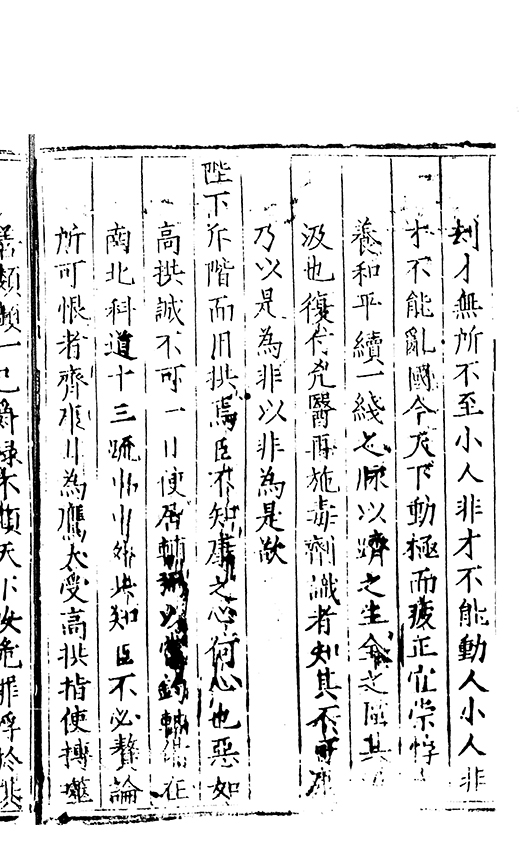 才無所不至小人非才不能動人小人非
才不能亂國今天下動極而疲正宜崇惇
養和平續一綫之脉以躋之生全之區其
汲也復付兇醫再施毒劑識者知其不可
乃以是為非以非為是歟
陛下不階而用拱焉臣不知康之心何心也惡如
高拱誠不可一日使居輔在
南北科道十三疏中外共知臣不必贅論
所可恨者齊康甘為鷹犬受高拱指使摶噬
善類顧一己爵祿不顧天下安危罪浮於拱